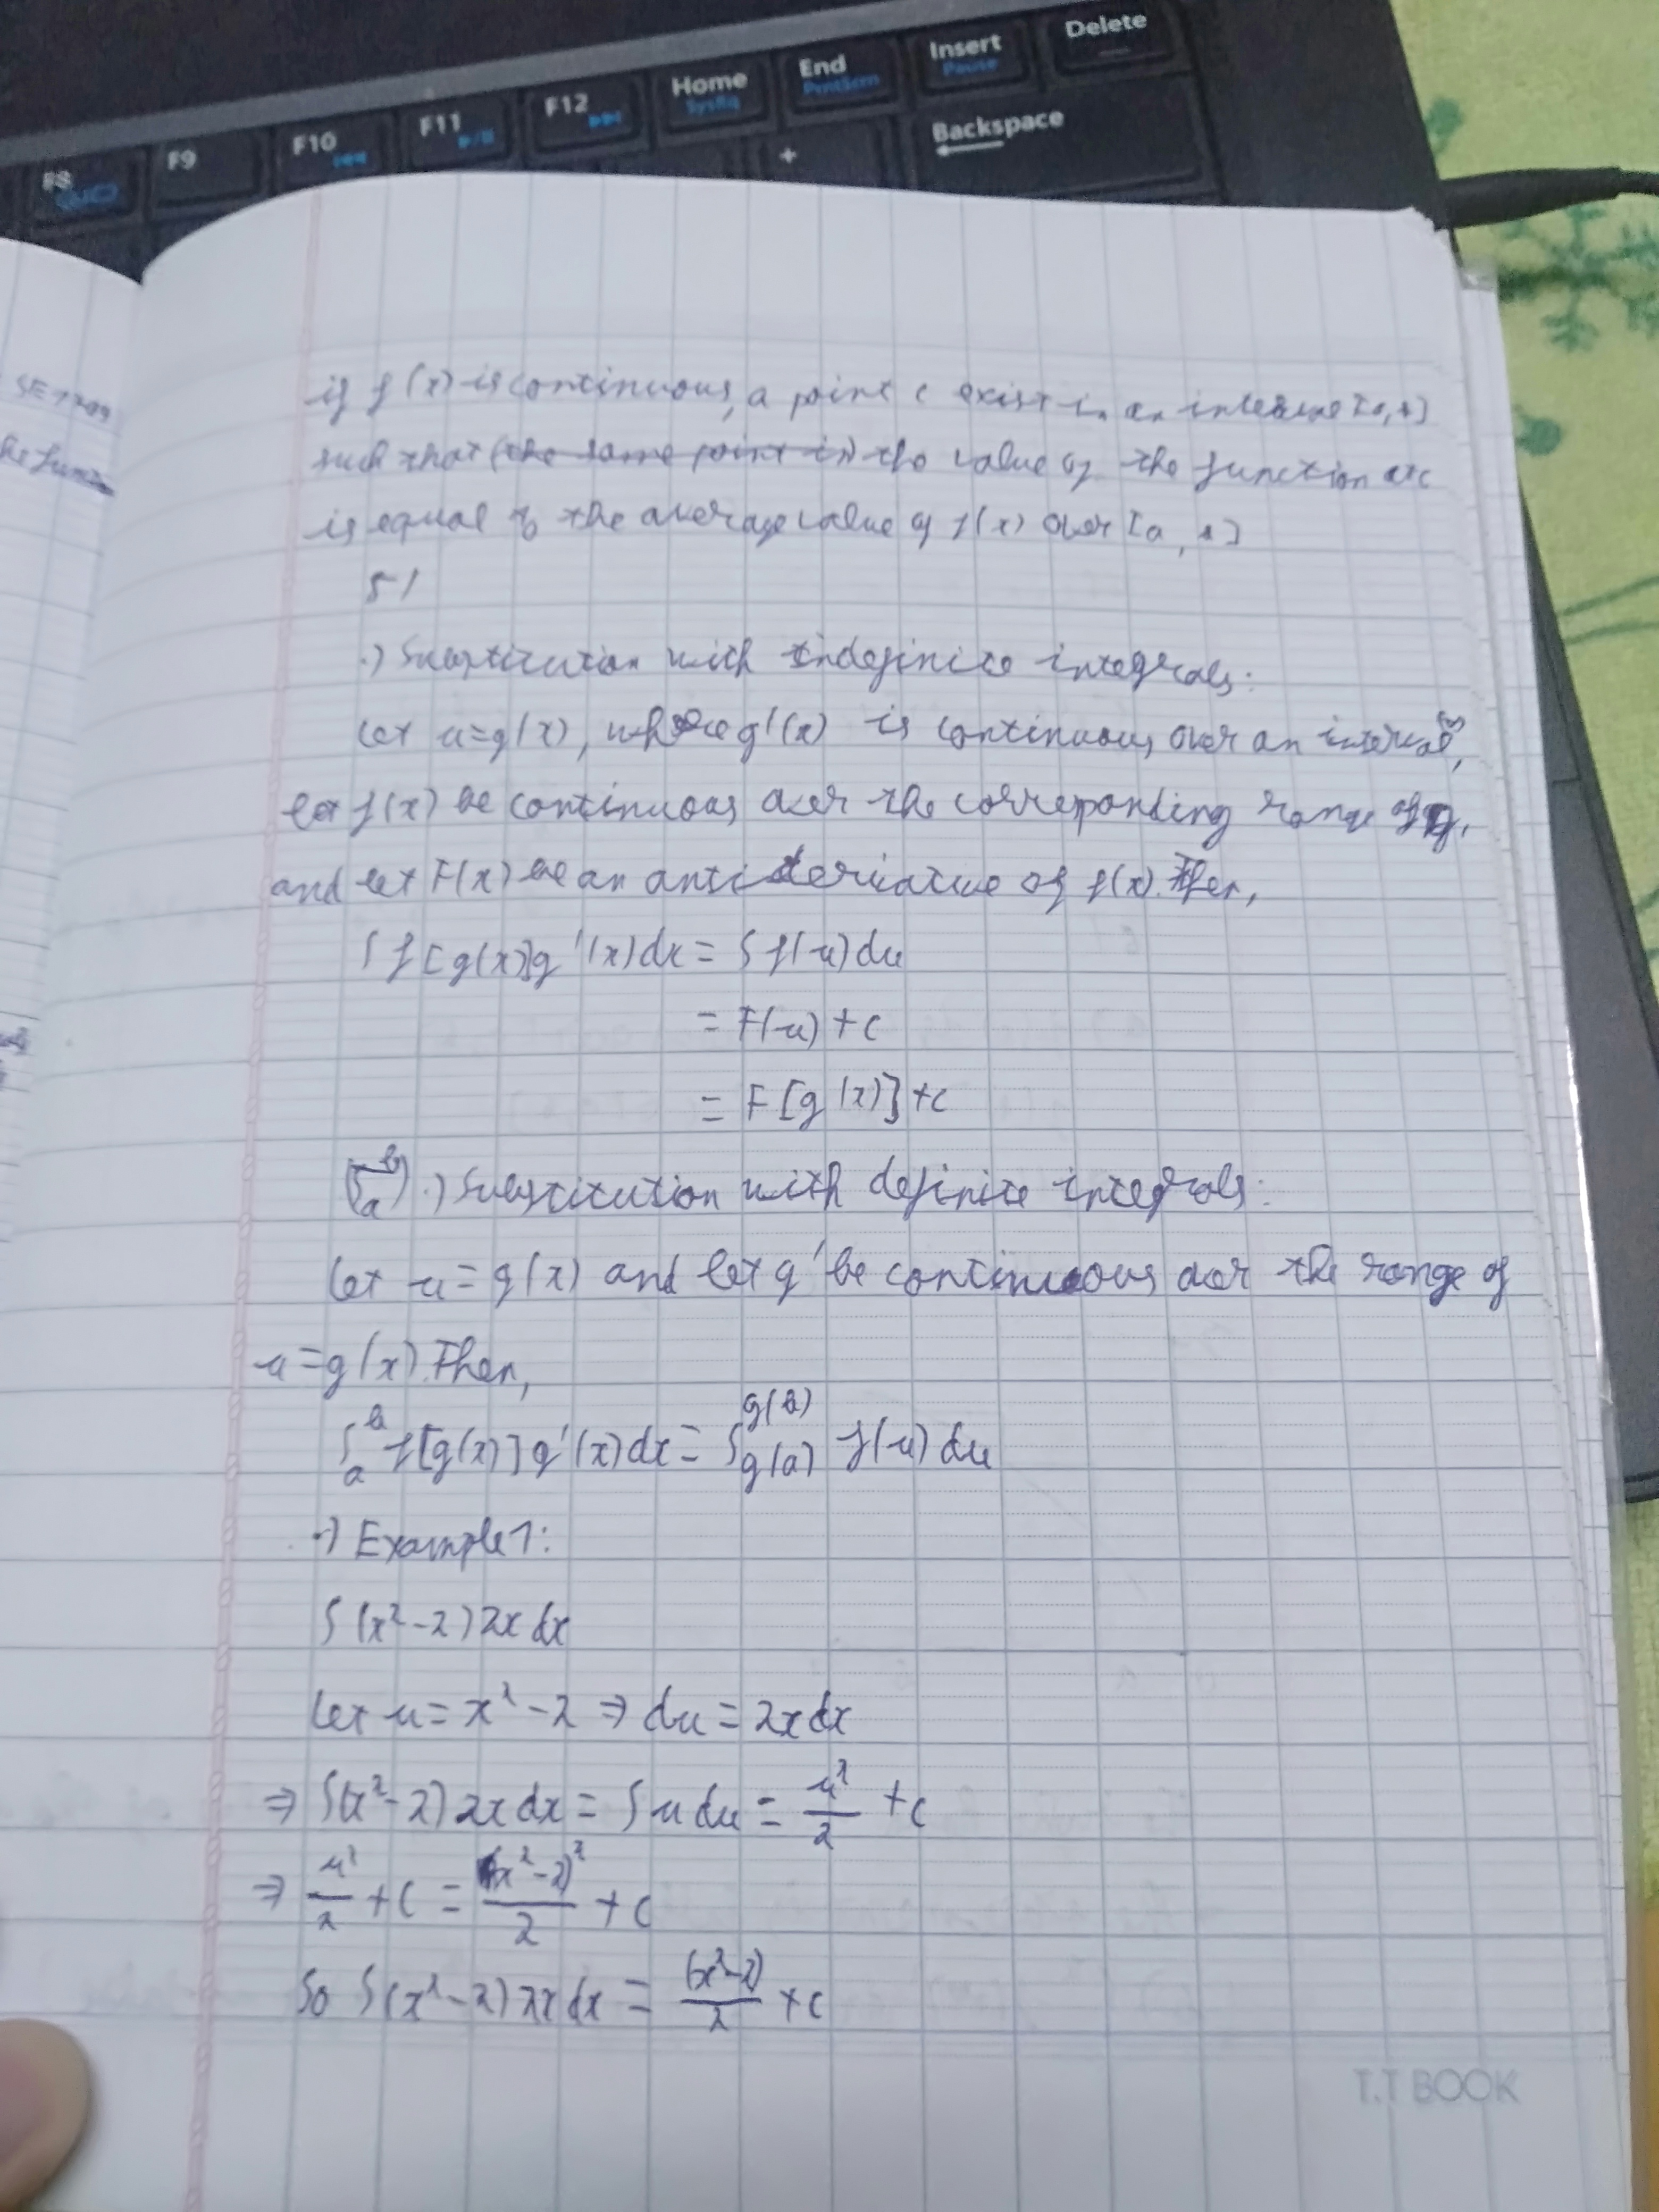 F8
F9
F10
F11
F12
Home
SysRq
End
PrntScrn
Insert
Pause
Delete
+
Backspace
if f(x) is continuous, a point c exist in an interval [a,b]
such that (the same point in) the value of the function at c
is equal to the average value of f(x) over [a, b]
5/
.) Substitution with indefinite integrals:
Let u=g(x), where g'(x) is continuous over an interval,
let f(x) be continuous over the correponding range of g,
and let F(x) be an antiderivative of f(x). Then,
∫ f[g(x)]g'(x)dx = ∫ f(u)du
= F(u) + C
= F[g(x)] + C
(∫_a^b) .) Substitution with definite integrals:
Let u = g(x) and let g' be continuous over the range of
u = g(x). Then,
∫_a^b f[g(x)] g'(x)dx = ∫_g(a)^g(b) f(u) du
.) Example 1:
∫ (x² - 2) 2x dx
Let u = x² - 2 ⇒ du = 2x dx
⇒ ∫(x² - 2) 2x dx = ∫ u du = u²/2 + C
⇒ u²/2 + C = (x² - 2)²/2 + C
So ∫(x² - 2) 2x dx = (x² - 2)/2 + C
T.T BOOK